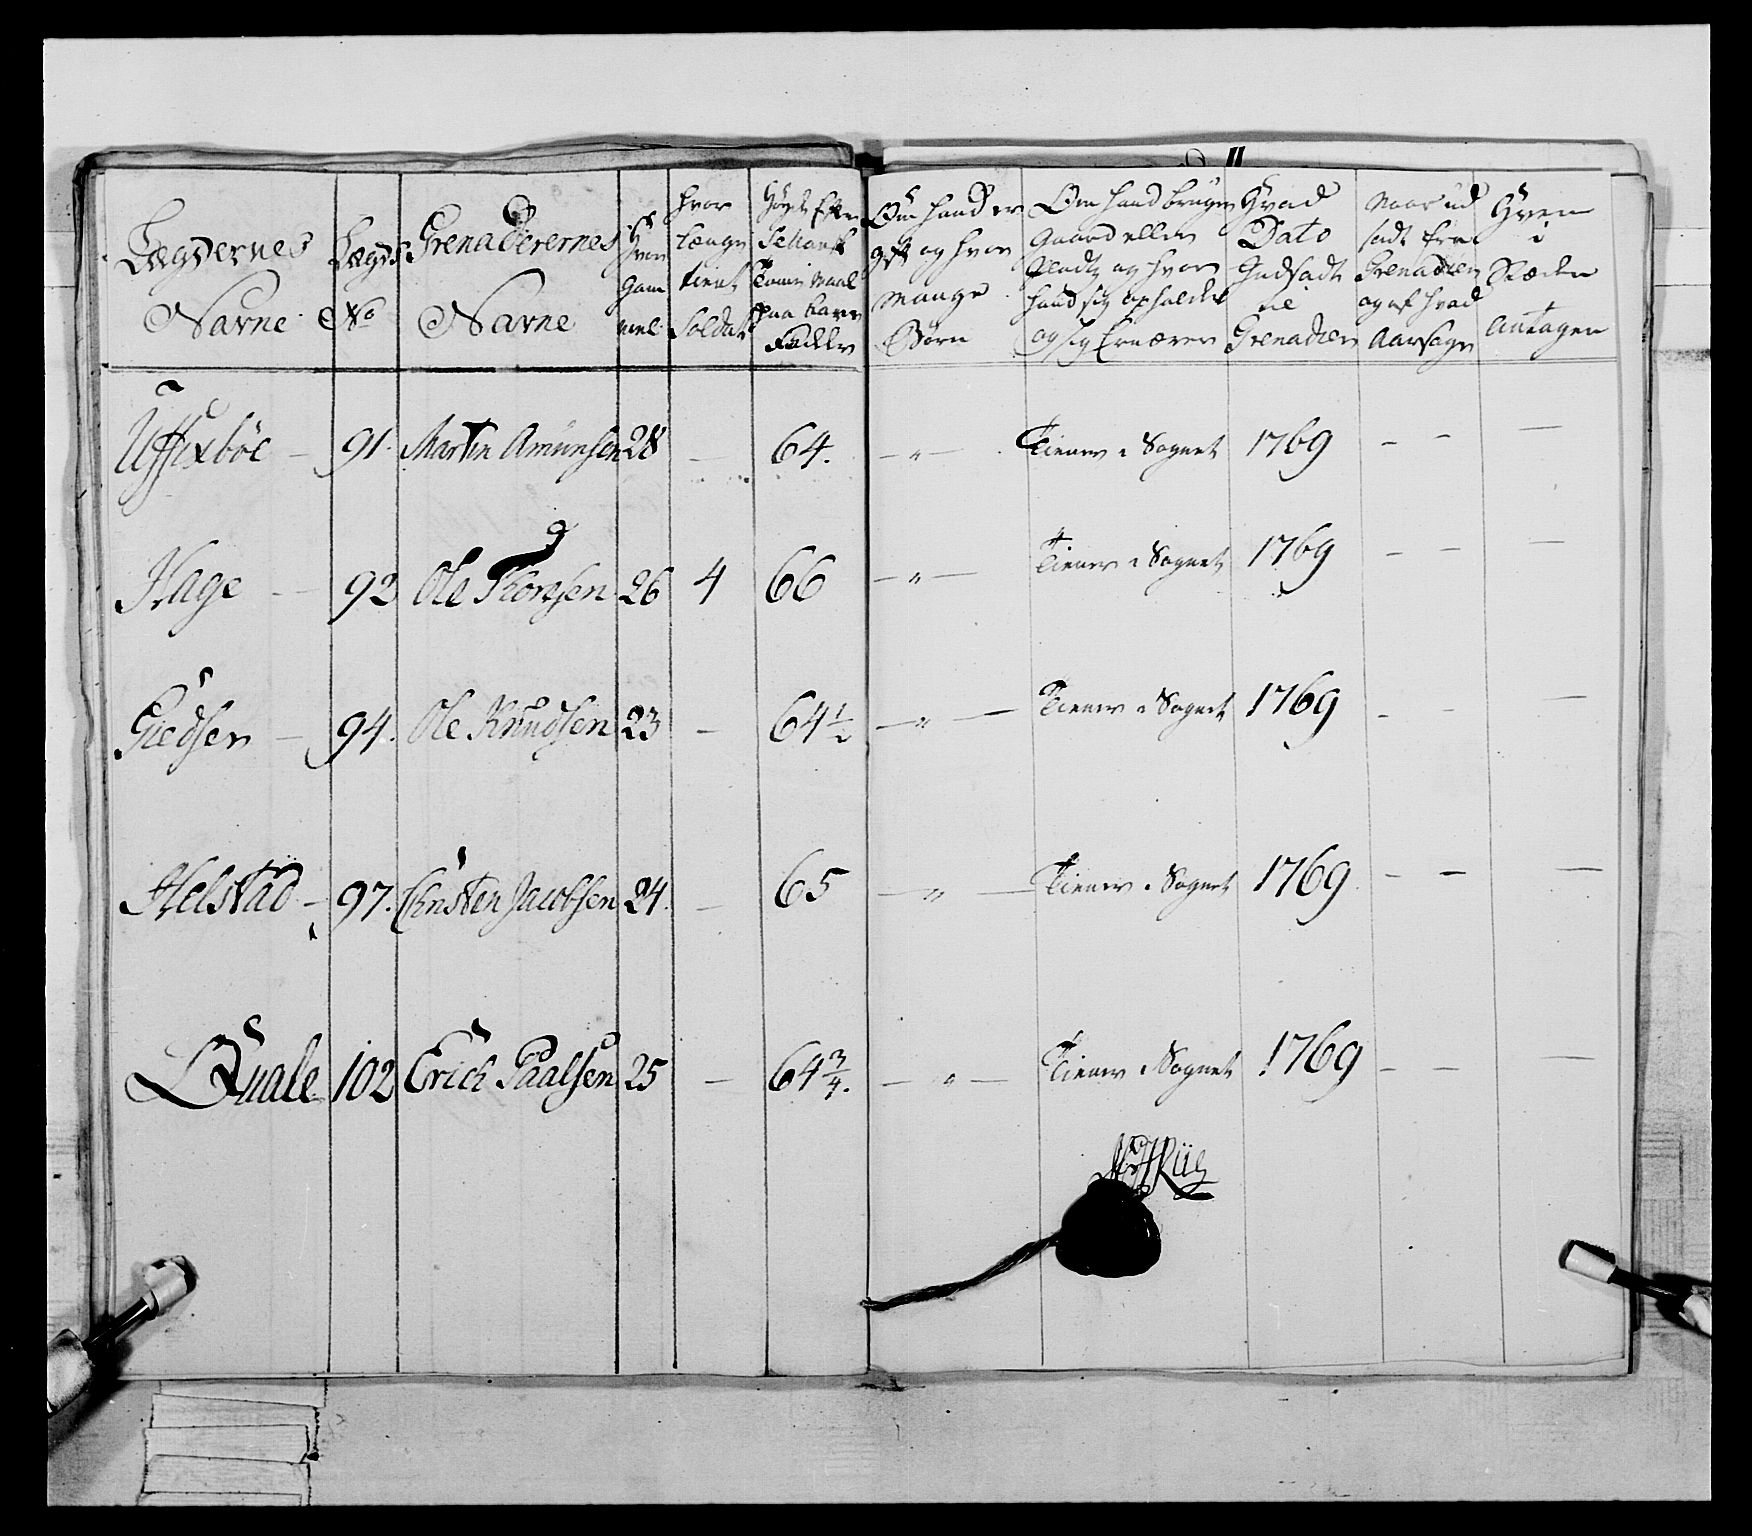 Lægdernes Navne
Lægds No
Grenaderernes Navne
Hvor Gammel
Hvor længe tient Soldat
Høyde Efter Tomme Maal paa bare Fødder
Om hand er gift og hvor mange Børn
Om hand bruger Gaard eller Pladtz og hvor hand sig opholder og sig Ernærer
Hvad Dato Indsadt til Grenadeer
Naar ud sadt fra Grenadeer og af hvad Aarsage
Hven i Stæden Antagen
Uffixböe – 91. Martin Amunsen 28 – 64. – " – Tiener i Sognet 1769 – – –
Hage – 92 Ole Thorsen 26 4 66 – " – Tiener i Sognet 1769 – – –
Giedsen – 94. Ole Knudsen 23 – 64 1/2 – " – Tiener i Sognet 1769 – – –
Helstad – 97. Christen Jacobsen 24. – 65 – " – Tiener i Sognet 1769 – – –
Quale 102 Erick Paalsen 25 – 64 3/4. – " – Tiener i Sognet 1769 – – –